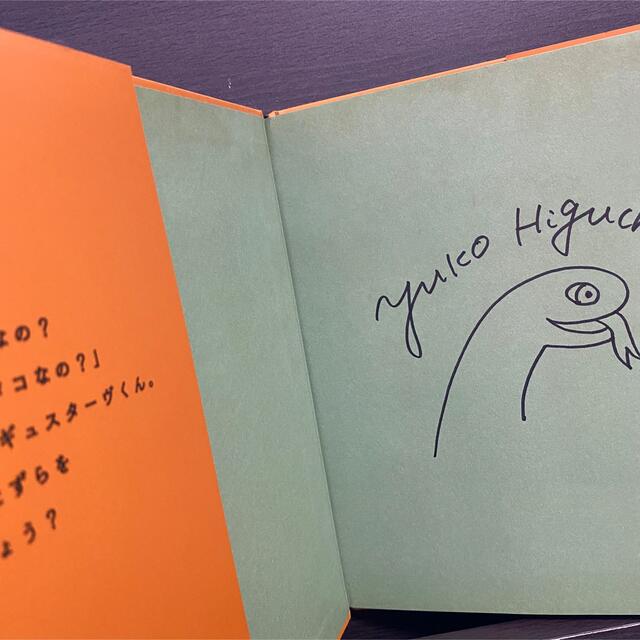 なの？
コなの？」
ギュスターヴくん。
ずらを
ょう？
Yuko Higuch